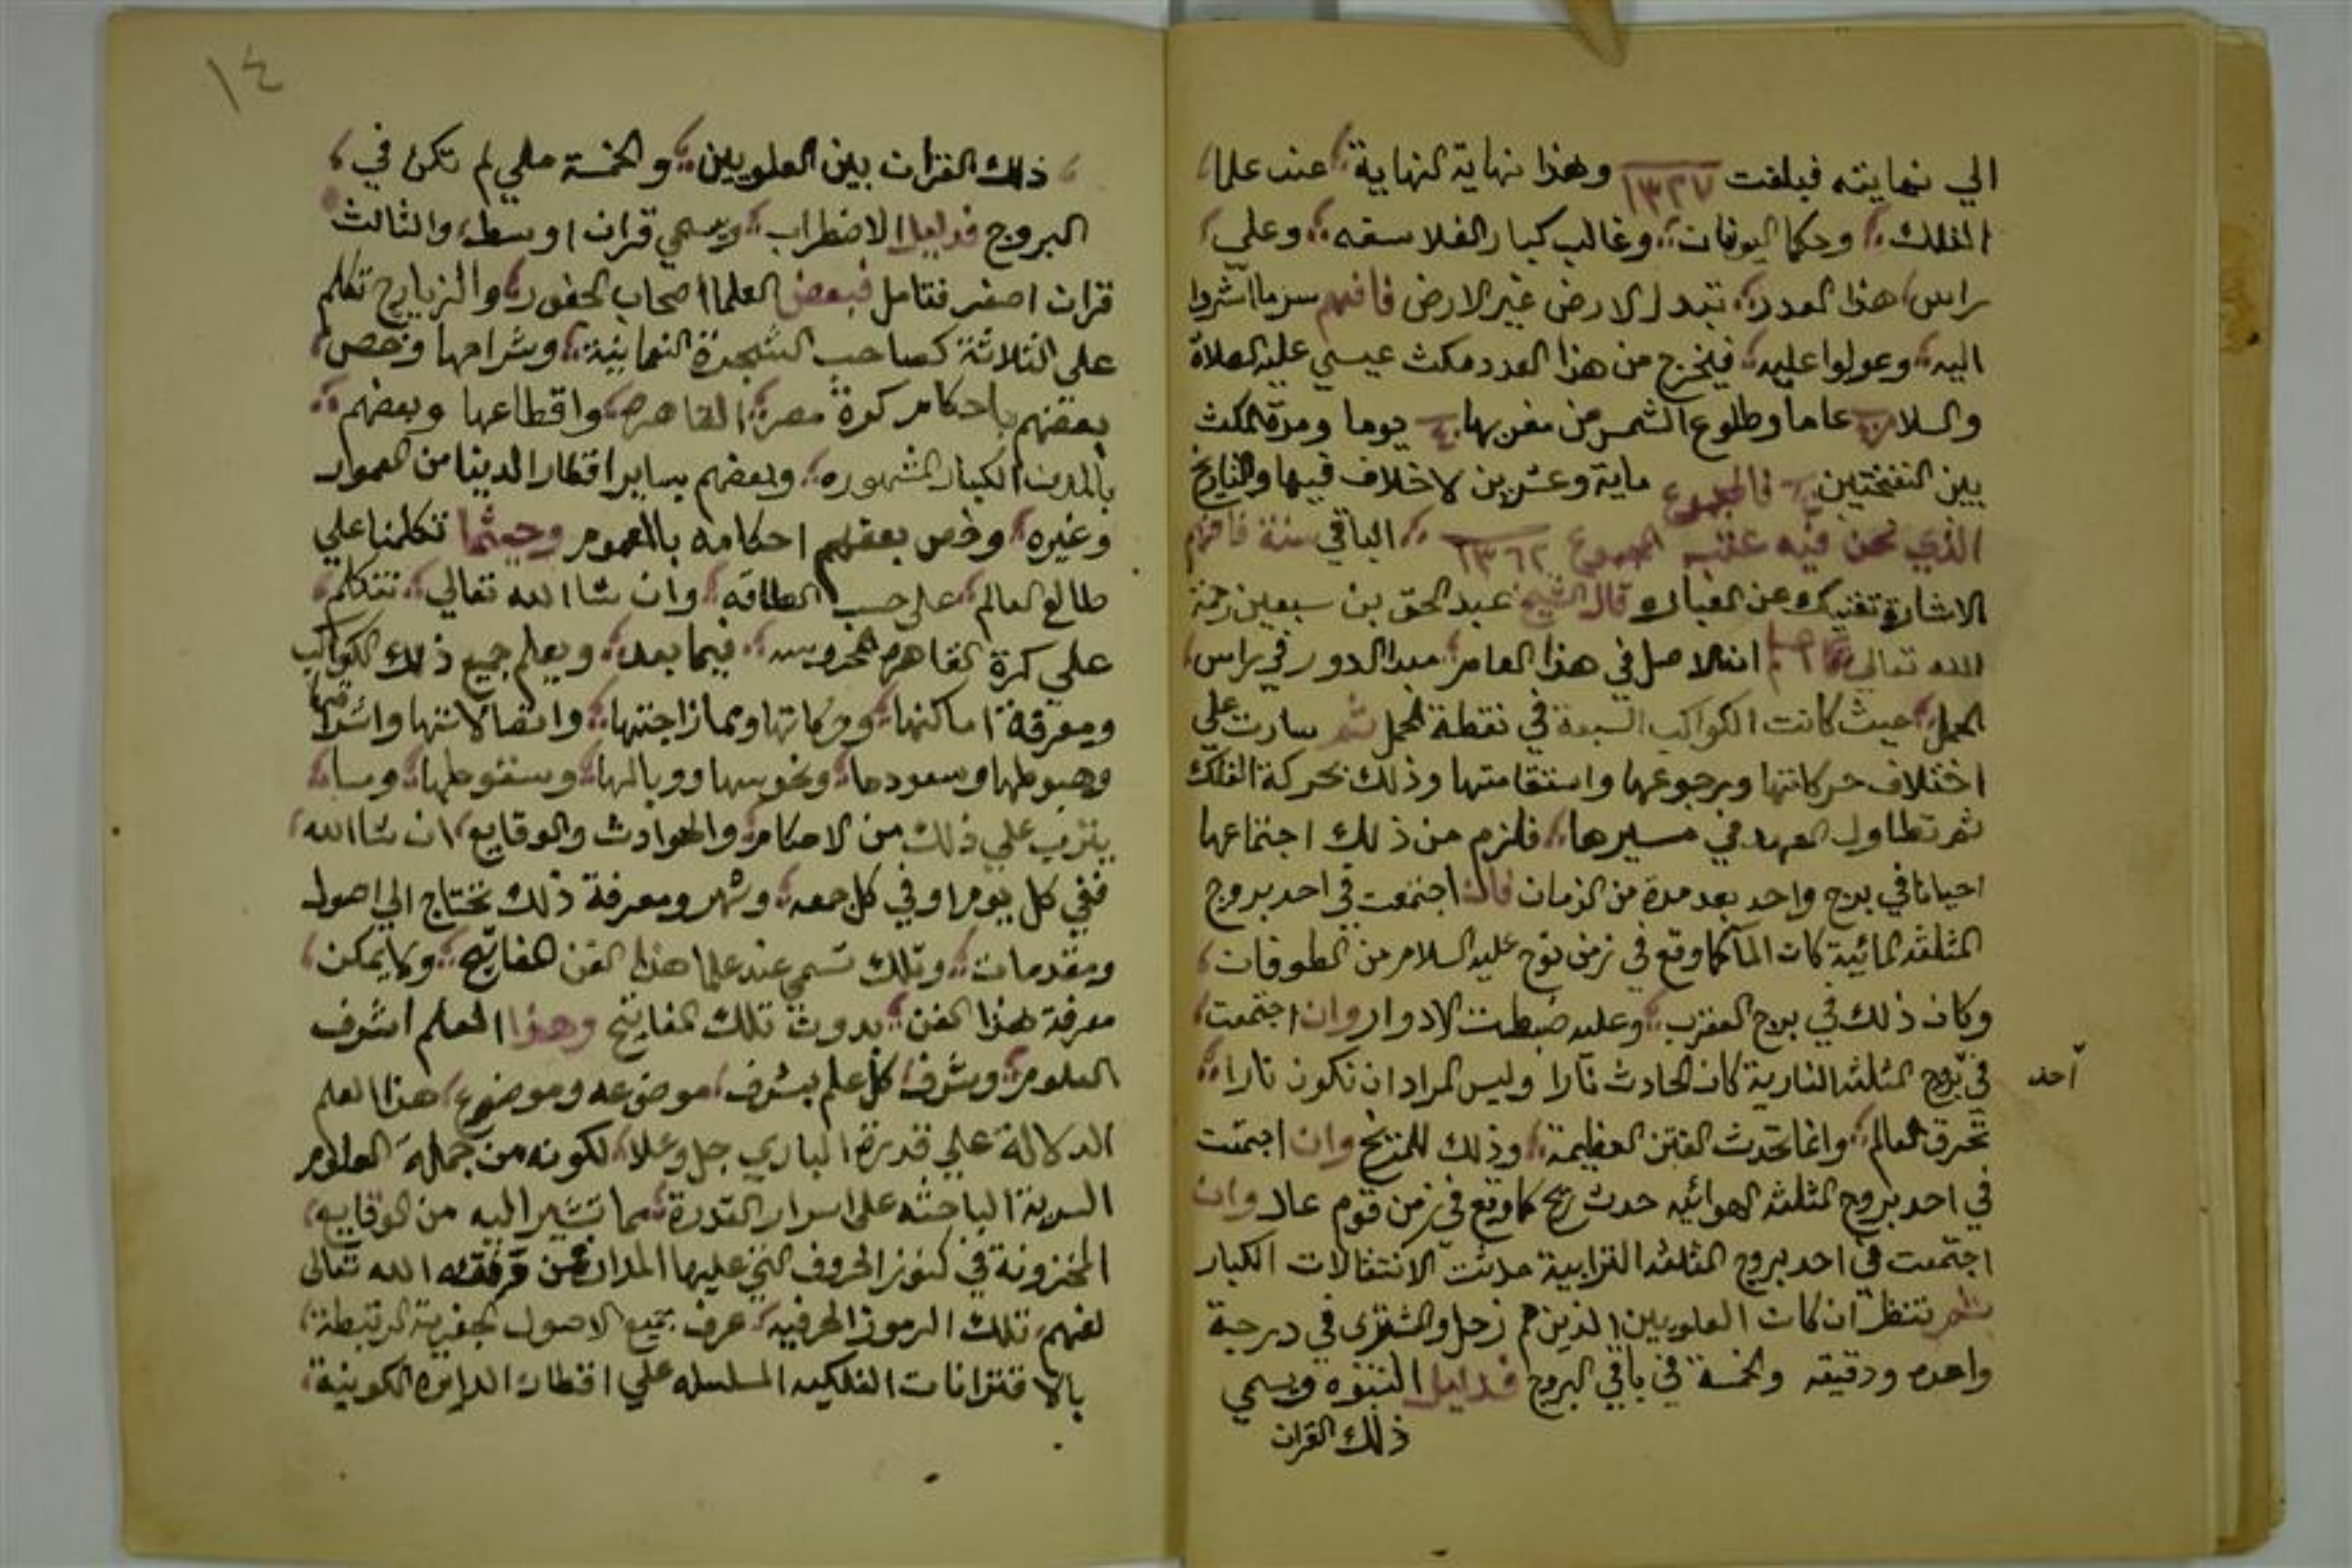 الي نهايته فبلغت ١٣٢٧ وهذا نهاية النهاية عند علما
الفلك وحكما اليونان وغالب كبار الفلاسفه وعلي
راس هذا العدد تبدل الارض غير الارض فافهم سر ما اشروا
اليه وعولوا عليه فيخرج من هذا العدد مكث عيسي عليه الصلاة
والسلام ٤٠ عاما وطلوع الشمس من مغربها يوما ومدة المكث
بين النفختين فالمجموع ماية وعشرين لا خلاف فيها والتاريخ
الذي نحن فيه المجموع ١٣٦٢ الباقي سنة فافهم
الاشارة تغنيك عن العباره قال الشيخ عبد الحق بن سبعين رحمة
الله تعالي ان الاصل في هذا العلم مبدا الدور في راس
الحمل حيث كانت الكواكب السبعة في نقطة الحمل ثم سارت علي
اختلاف حركاتها ورجوعها واستقامتها وذلك بحركة الفلك
ثم تطاول العهد في مسيرها فلزم من ذلك اجتماعها
احيانا في برج واحد بعد مدة من الزمان فان اجتمعت في احد بروج
المثلثه المائية كان الما كما وقع في زمن نوح عليه السلام من الطوفان
وكان ذلك في برج العقرب وعليه ضبطت الادوار وان اجتمعت
في بروج المثلثه النارية كان الحادث نارا وليس المراد ان تكون نارا
احد
تحرق العالم وانما تحدث الفتن العظيمة وذلك للمريخ وان اجتمعت
في احد بروج المثلثه الهوائيه حدث ريح كما وقع في زمن قوم عاد وان
اجتمعت في احد بروج المثلثه الترابية حدثت الانتقالات الكبار
ثم تنظر ان كان العلويين الذين هم زحل والمشتري في درجة
واحده ودقيقه والخمسة في باقي البروج فدليل النبوه ويسمي
ذلك القران
١٤
ذلك القران بين العلويين والخمسة ملي لم تكن في
البروج فدليل الاضطراب ويسمي قران اوسط والثالث
قران اصغر فتامل فبعض العلما اصحاب الجفور والزيارج تكلم
علي الثلاثة كصاحب الشجرة النعمانية وشراحها وخص
بعضهم باحكام كورة مصر القاهره واقطاعها وبعضهم
بالمدن الكبار المشهوره وبعضهم بساير اقطار الدنيا من العمار
وغيره وخص بعضهم احكامه بالعموم وحيثما تكلمنا علي
طالع العالم علي حسب الطاقه وان شا الله تعالي نتكلم
علي كرة القاهره المحروسه فيما بعد ويعلم جميع ذلك الكواكب
ومعرفة اماكنها وحركاتها وممازاجتها واتصالاتها واشرافها
وهبوطها وسعودها ونحوسها ووبالها وسقوطها وما
يترتب علي ذلك من الاحكام والحوادث والوقايع ان شا الله
ففي كل يوم او في كل جمعه وشهر ومعرفة ذلك تحتاج الي اصول
ومقدمات وتلك تسمي عند علما هذا الفن المفاتيح ولا يمكن
معرفة هذا الفن بدون تلك المفاتيح وهذا العلم اشرف
العلوم وشرف كل علم بشرف موضوعه وموضوع هذا العلم
الدلالة علي قدرة الباري جل وعلا لكونه من جملة العلوم
السرية الباحثه علي اسرار القدرة مما تشير اليه من الوقايع
المخزونة في كنوز الحروف التي عليها المدار فمن وفقه الله تعالي
لفهم تلك الرموز الحرفيه عرف جميع الاصول الجفرية المرتبطة
بالاقترانات الفلكيه المسلسله علي اقطار الدايره الكونية